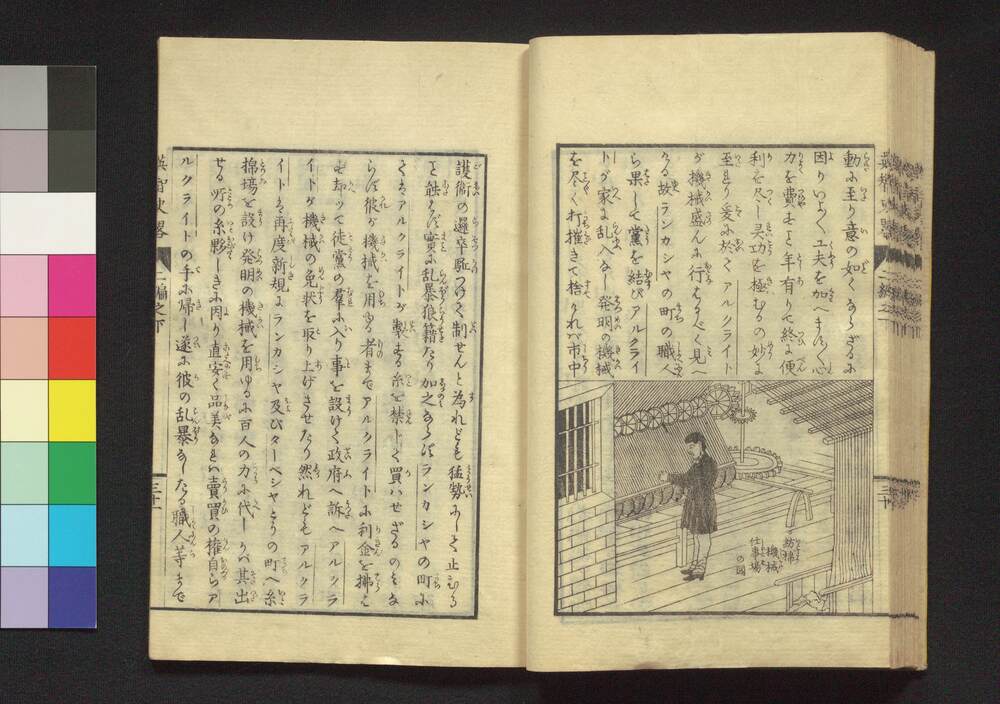 動に至り意の如くならざるに
因りいよ〳〵工夫を加へまつたく心
力を費すこと年有りて終に便
利を尽し其功を極むるの妙に
至れり爰に於てアルクライト
が機械盛んに行はるべく見へ
たる故ランカシヤの町の職人
ら果して黨を結びアルクライ
トが家に乱入なし発明の機械
を尽く打摧きて捨ければ市中
紡棉
機械
仕事場
の図
護衛の邏卒駈つけて制せんと為れども猛勢にして止むる
を能はず實に乱暴狼籍たり加之ならばランカシヤの町に
てはアルクライトが製する糸を禁じて買はせざるのみな
らず彼が機械を用ゆる者までアルクライトに利金を拂は
ず却つて徒黨の羣に入り事を設けて政府へ訴へアルクラ
イトが機械の免状を取り上げさせたり然れどもアルクラ
イトは再度新規にランカシヤ及びターベシヤとりの町へ糸
棉場を設け発明の機械を用ゆるに百人の力に代しりべ其出
せる所の糸夥しきに因り直安く品美なれば賣買の権自らア
ルクライトの手に帰し遂に彼の乱暴なしたる職人等まで
二編之下
三十一